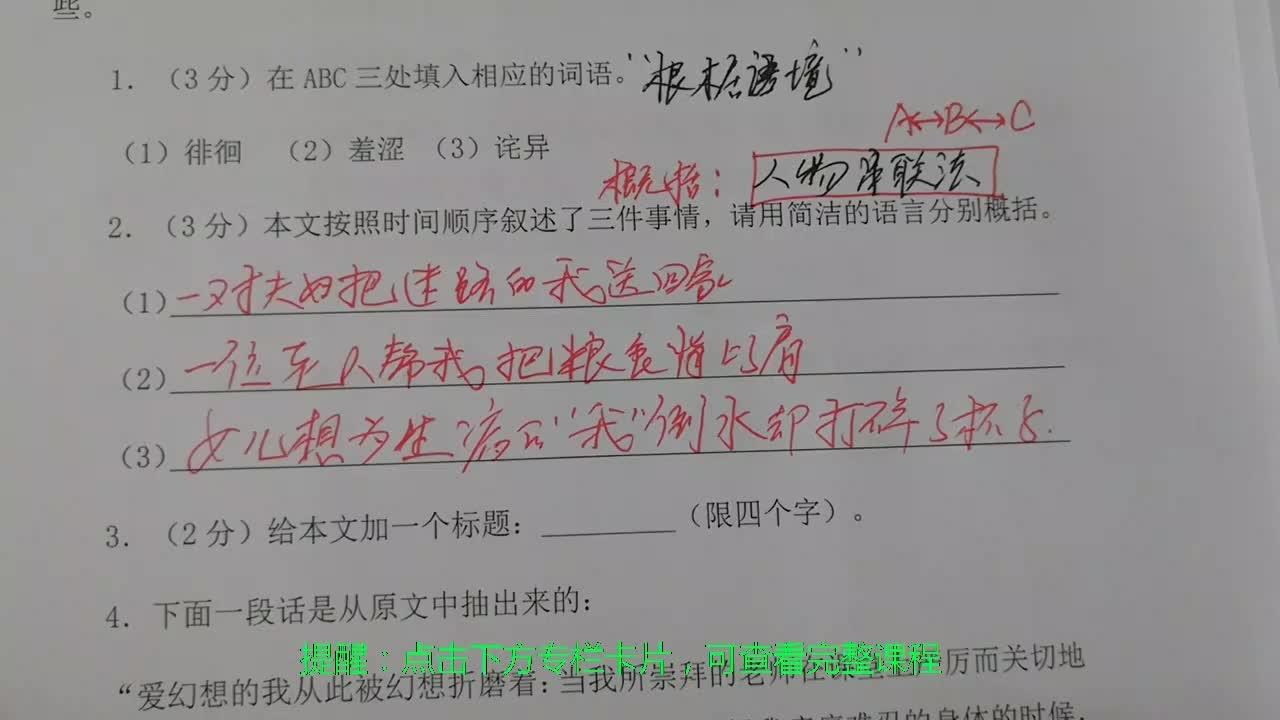 些。
1．（3分）在ABC三处填入相应的词语。“根据语境”
A↔B↔C
（1）徘徊 （2）羞涩 （3）诧异
概括：人物串联法
2．（3分）本文按照时间顺序叙述了三件事情，请用简洁的语言分别概括。
（1）一对夫妇把迷路的我送回家
（2）一位军人帮我把粮食背上肩
（3）女儿想为生病的“我”倒水却打碎了杯子.
3．（2分）给本文加一个标题：________（限四个字）。
4．下面一段话是从原文中抽出来的：
提醒：点击下方专栏卡片，可查看完整课程
“爱幻想的我从此被幻想折磨着：当我所崇拜的老师在课堂上 厉而关切地
的身体的时候，